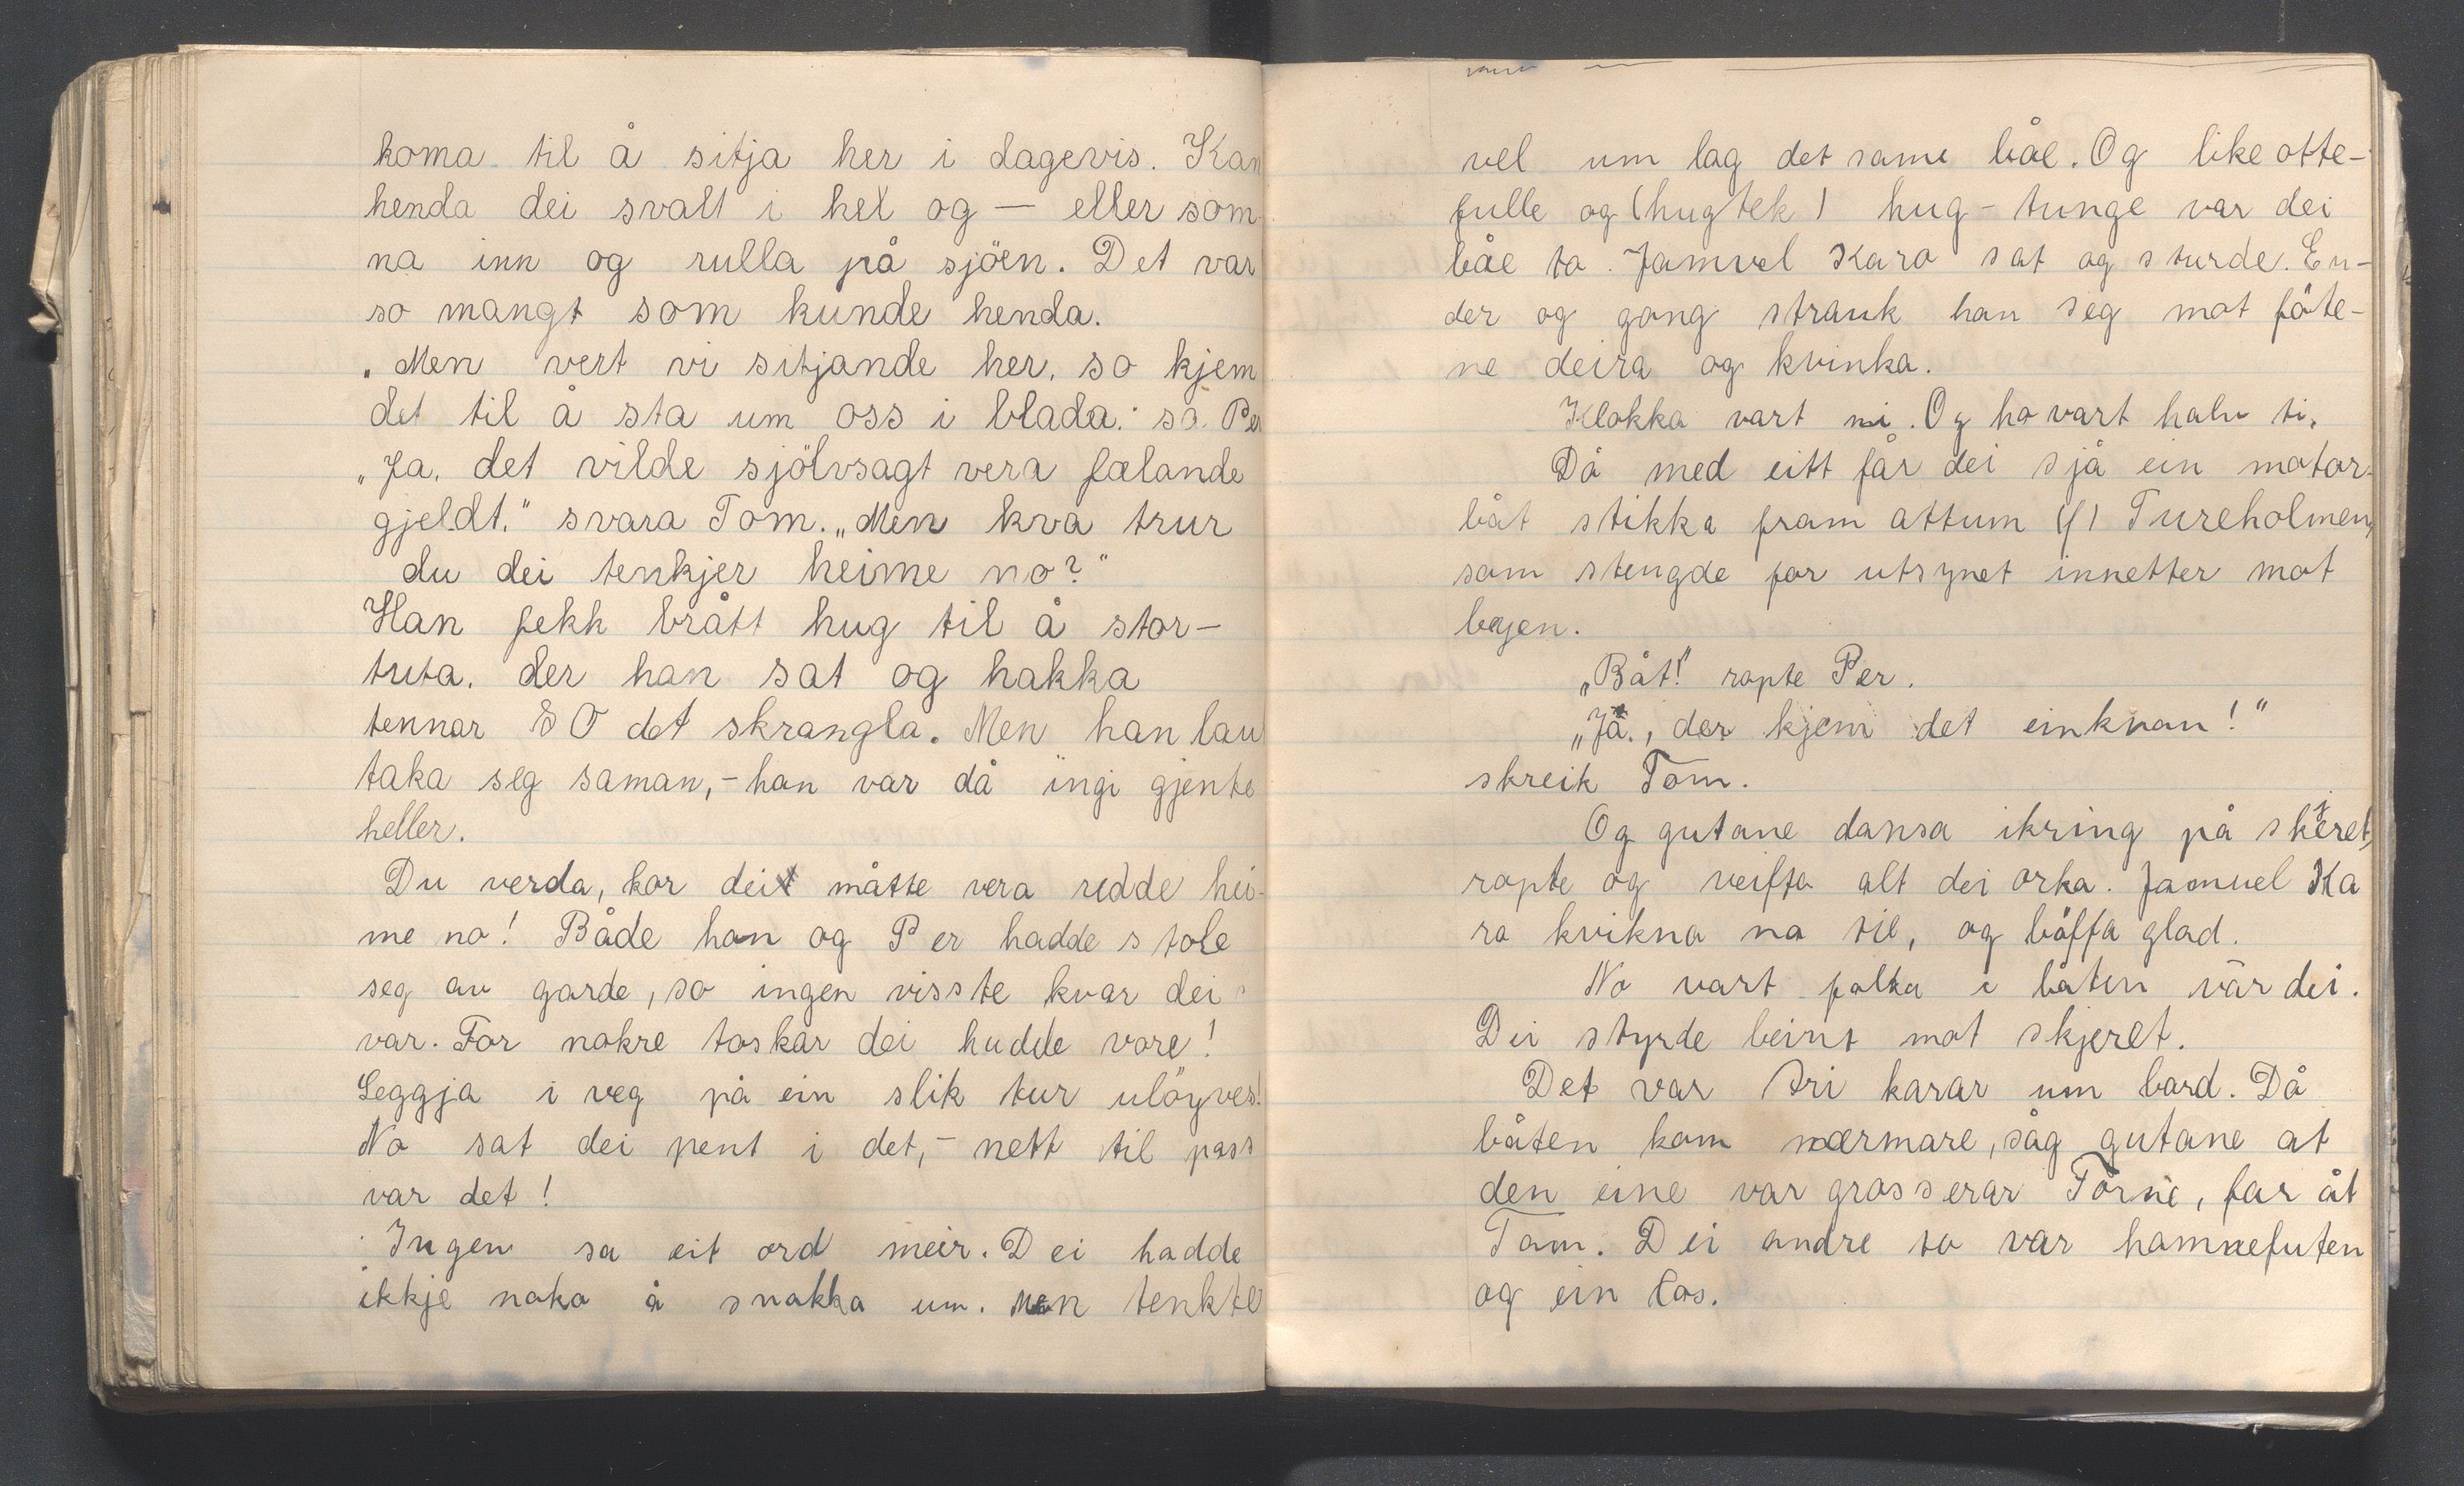 koma til å sitja her i dagevis. Kan
henda dei svalt i hel og — eller som
na inn og rulla på sjöen. Det var
so mangt som kunde henda.
„Men vert vi sitjande her, so kjem
det til å sta um oss i blada." sa Per
„Ja, det vilde sjölvsagt vera fælande
gjeldt." svara Tom. „Men kva trur
du dei tenkjer heime no?"
Han fekk brått hug til å stor-
tuta, der han sat og hakka
tennar SO det skrangla. Men han lau
taka seg saman, - han var då ingi gjente
heller.
Du verda, kor dei måtte vera redde hei-
me no! Både han og Per hadde stole
seg av garde, so ingen visste kvar dei
var. For nokre toskar dei hadde vore!
Leggja i veg på ein slik tur ulöyves!
No sat dei pent i det, - nett til pass
var det!
Ingen sa eit ord meir. Dei hadde
ikkje noko å snakka um. Men tenkte
vel um lag det same båe. Og like otte-
fulle og (hugtek) hug-tunge var dei
båe to. Jamvel Karo sat og sturde. En-
der og gong strauk han seg mot föte-
ne deira og kvinka.
Klokka vart ni. Og ho vart halv ti.
Då med eitt får dei sjå ein motor-
båt stikka fram attum (f) Tureholmen,
som stengde for utsynet innetter mot
byen.
„Båt!" ropte Per.
„Jå., der kjem det einkvan!"
skreik Tom.
Og gutane dansa ikring på skjeret,
ropte og veifta alt dei orka. Jamvel Ka
ro kvikna no til, og böffa glad.
No vart folka i båten vår dei.
Dei styrde beint mot skjeret.
Det var tri karar um bord. Då
båten kom nærmare, såg gutane at
den eine var grosserar Torne, far åt
Tom. Dei andre to var hamnefuten
og ein los.